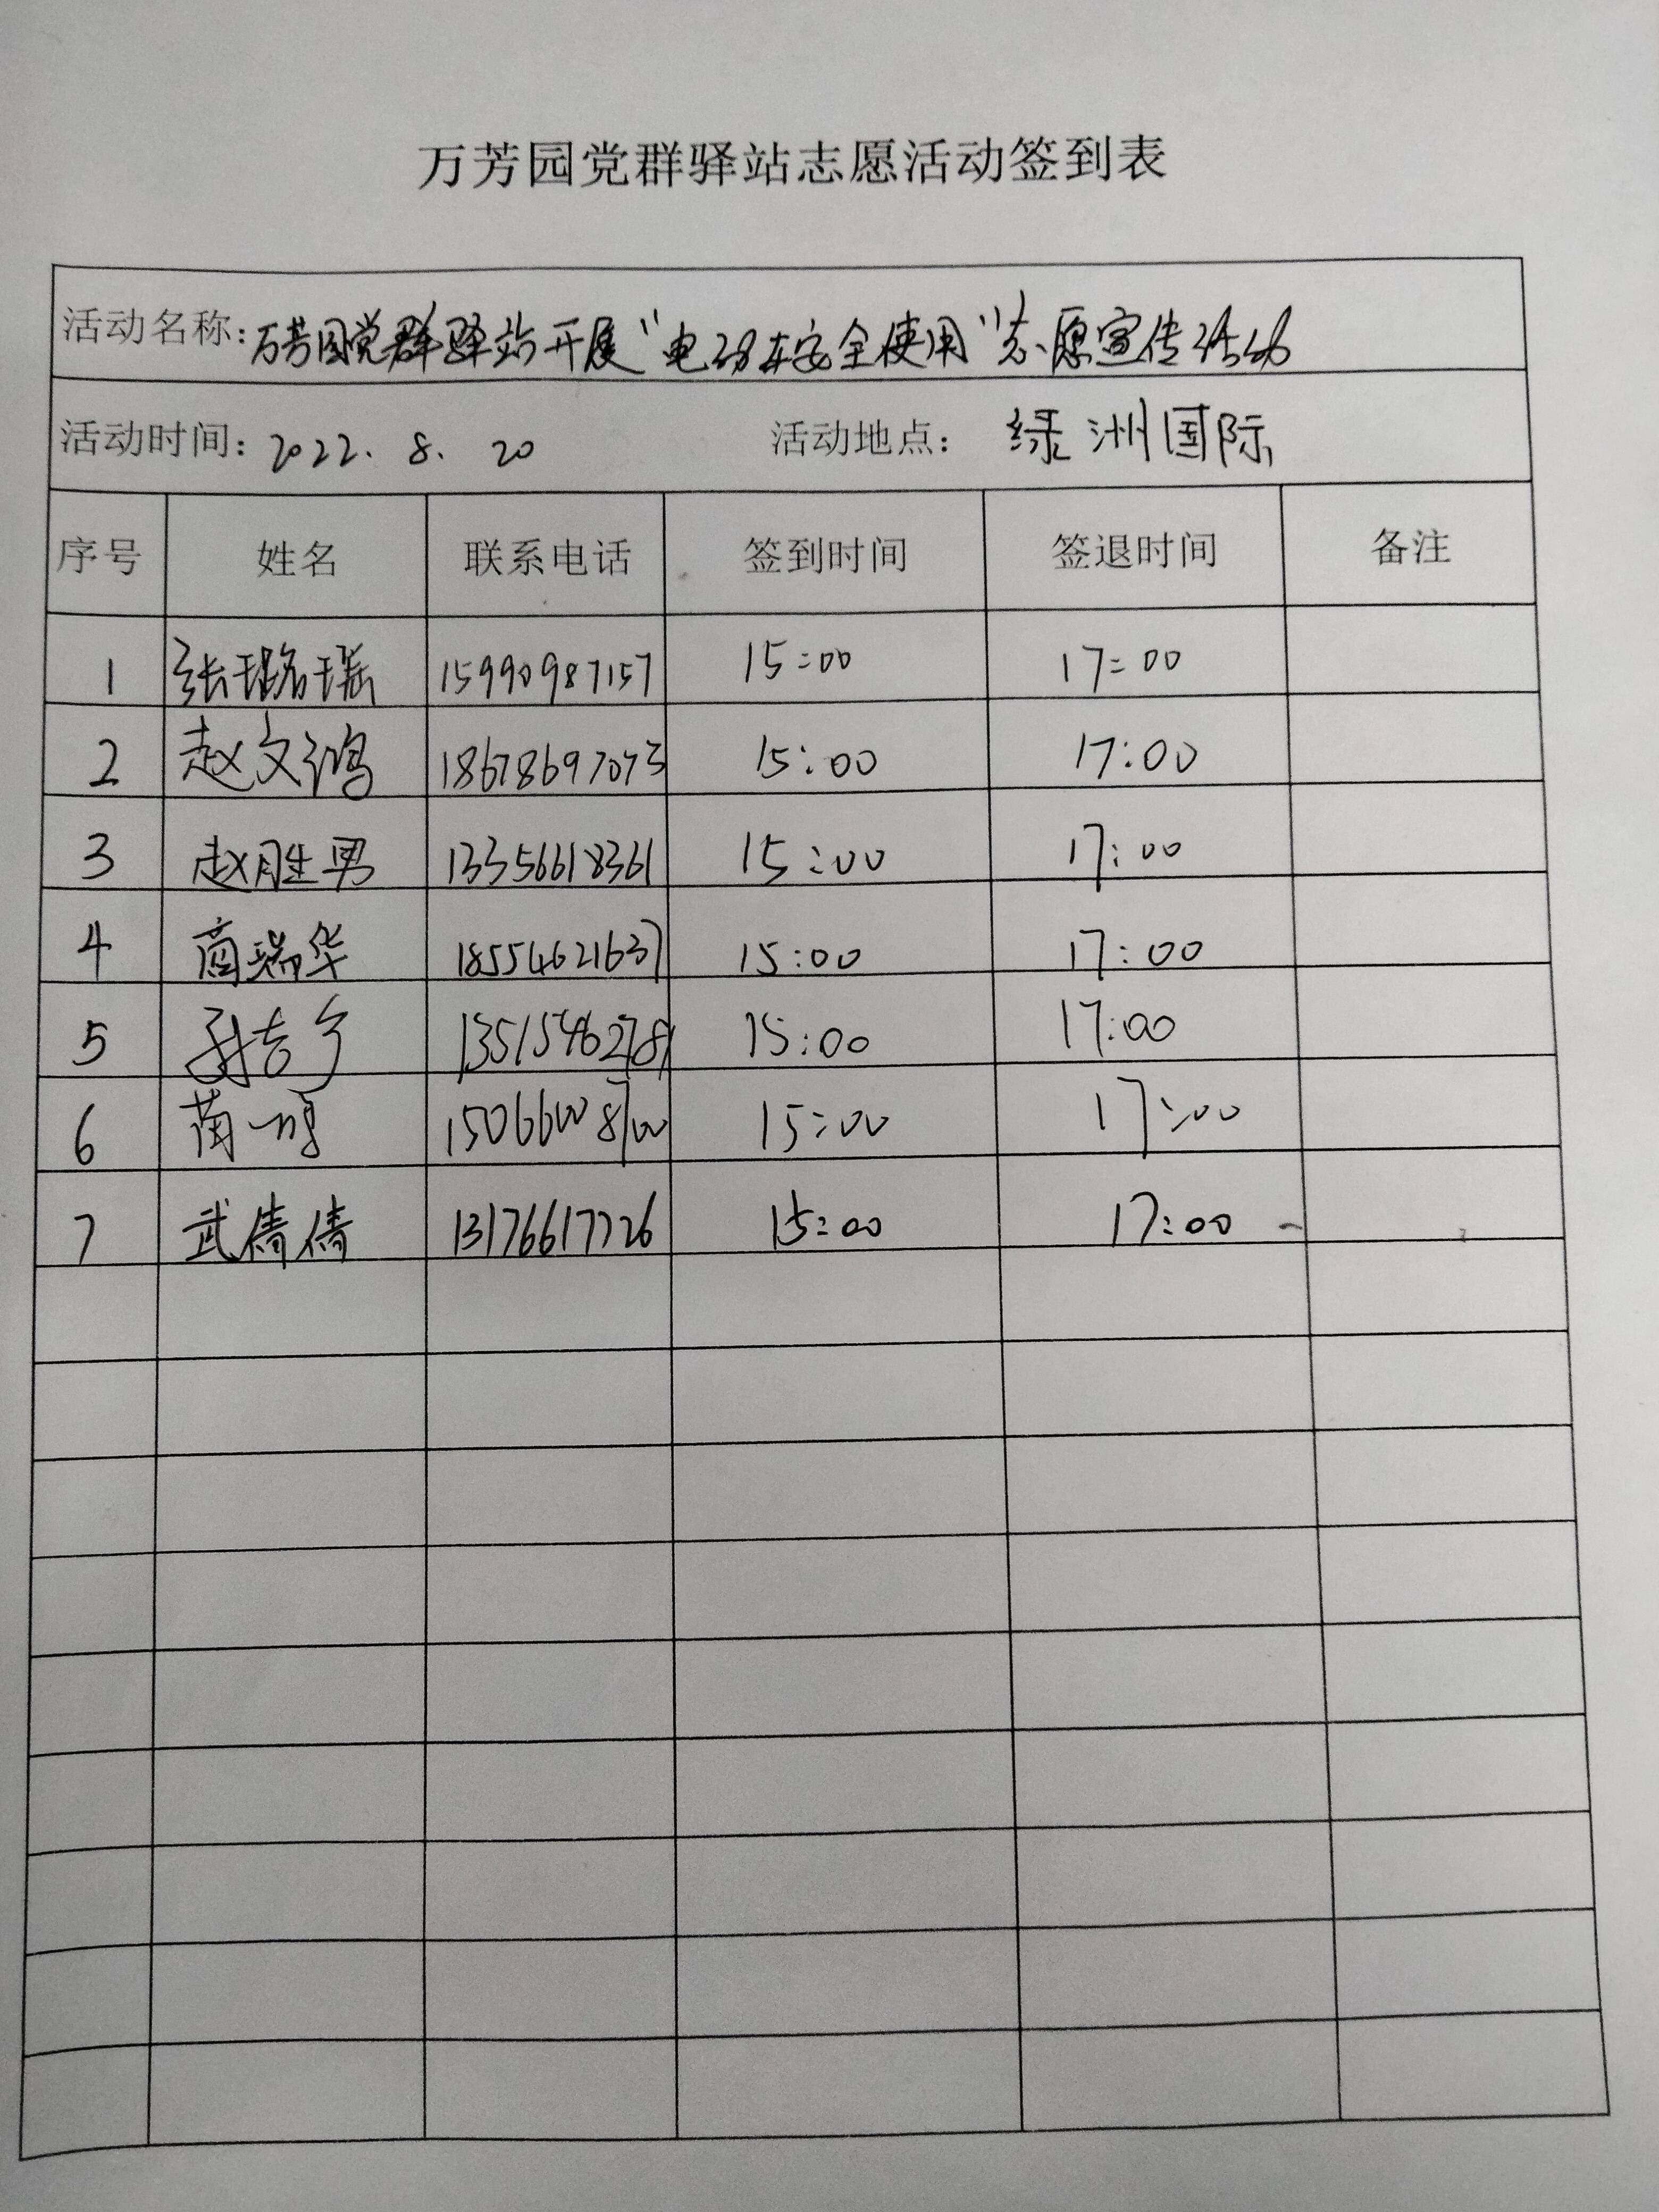 万芳园党群驿站志愿活动签到表
活动名称:万芳园党群驿站开展“电动车安全使用”志愿宣传活动
活动时间: 2022. 8. 20 活动地点: 绿洲国际
序号 姓名 联系电话 签到时间 签退时间 备注
1 张璐瑶 15990987157 15:00 17:00
2 赵文鸿 18678697073 15:00 17:00
3 赵胜男 13356618361 15:00 17:00
4 瑞华 18554621637 15:00 17:00
5 15:00 17:00
6 15066008700 15:00 17:00
7 武倩倩 13176617726 15:00 17:00